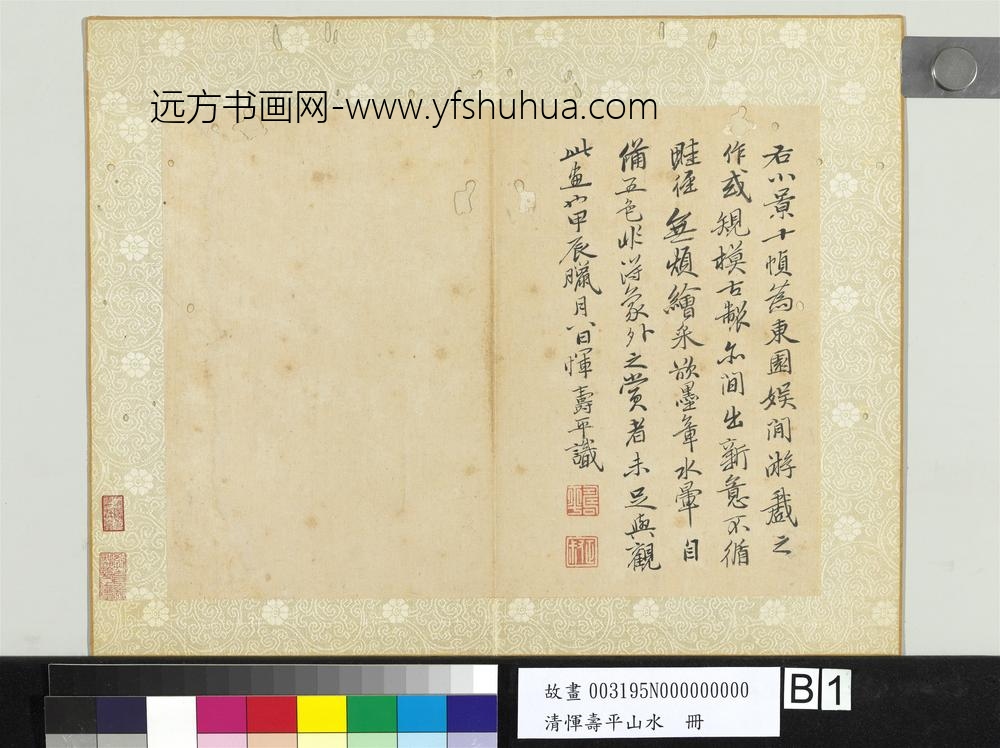 远方书画网-www.yfshuhua.com
右小景十幀為東園娱閒游戲之
作或規模古製亦間出新意不循
畦徑無煩繪采欲墨章水暈自
備五色非得象外之賞者未足與觀
此畫也甲辰臘月八日惲壽平識
故畫 003195N000000000
清惲壽平山水 冊
B 1